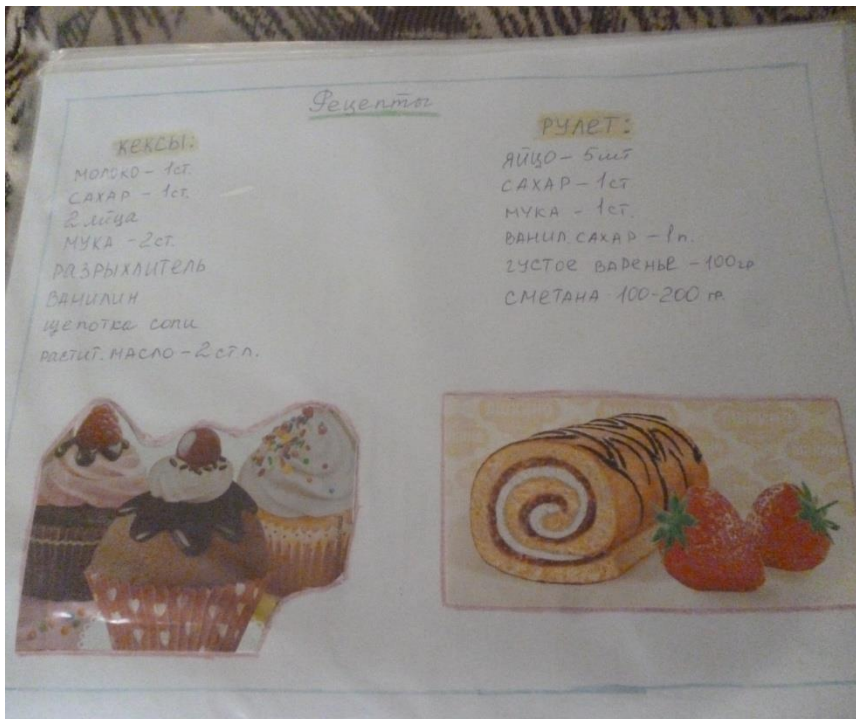 Рецепты
КЕКСЫ:
МОЛОКО – 1ст.
САХАР – 1ст.
2 яйца
МУКА – 2ст.
РАЗРЫХЛИТЕЛЬ
ВАНИЛИН
щепотка соли
растит. МАСЛО – 2 ст л.
РУЛЕТ:
ЯЙЦО – 5 шт
САХАР – 1ст
МУКА – 1ст.
ВАНИЛ. САХАР – 1п.
ГУСТОЕ ВАРЕНЬЕ – 100гр
СМЕТАНА 100-200 гр.